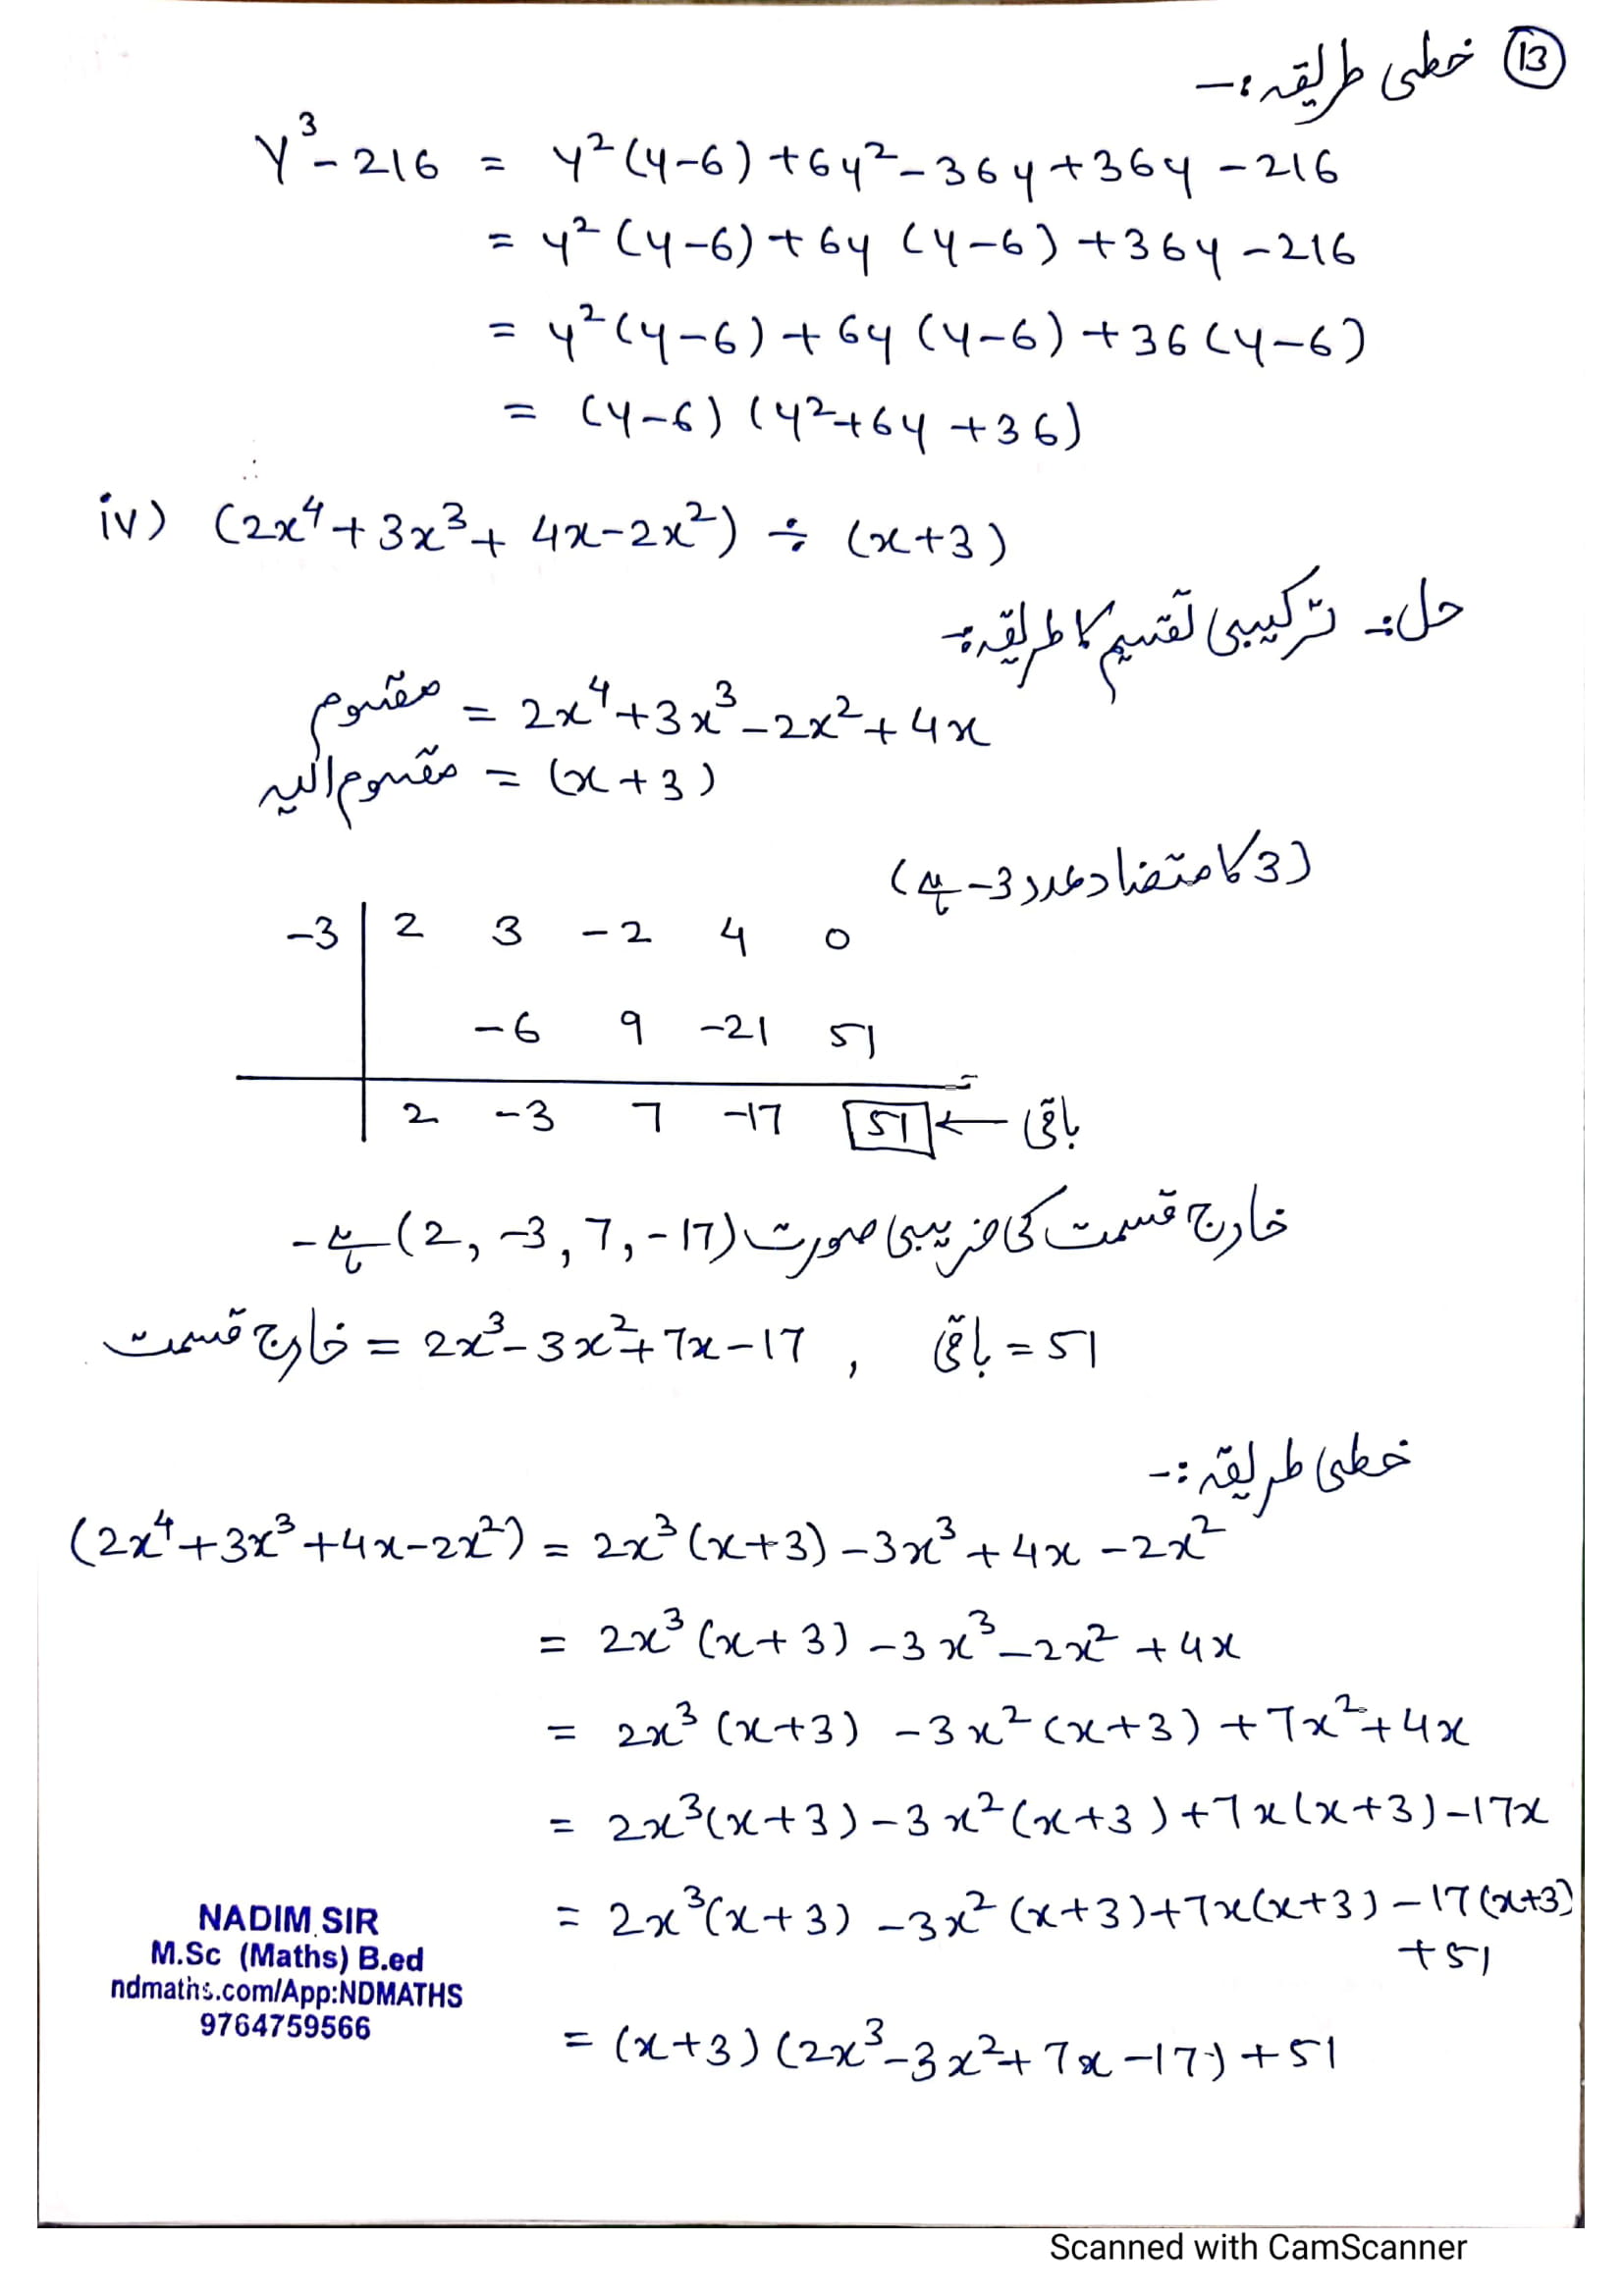 ⑬ خطی طریقہ :-
y³ - 216 = y²(y-6) + 6y² - 36y + 36y - 216
= y²(y-6) + 6y(y-6) + 36y - 216
= y²(y-6) + 6y(y-6) + 36(y-6)
= (y-6)(y²+6y+36)
iv) (2x⁴ + 3x³ + 4x - 2x²) ÷ (x+3)
حل :- ترکیبی تقسیم کا طریقہ :-
مقسوم = 2x⁴ + 3x³ - 2x² + 4x
مقسوم الیہ = (x+3)
(3 کا متضاد عدد 3- ہے)
-3 | 2 3 -2 4 0
-6 9 -21 51
2 -3 7 -17 51 ← باقی
خارج قسمت کی ضریبی صورت (2, -3, 7, -17) ہے -
خارج قسمت = 2x³ - 3x² + 7x - 17 , باقی = 51
خطی طریقہ :-
(2x⁴ + 3x³ + 4x - 2x²) = 2x³(x+3) - 3x³ + 4x - 2x²
= 2x³(x+3) - 3x³ - 2x² + 4x
= 2x³(x+3) - 3x²(x+3) + 7x² + 4x
= 2x³(x+3) - 3x²(x+3) + 7x(x+3) - 17x
= 2x³(x+3) - 3x²(x+3) + 7x(x+3) - 17(x+3)
+ 51
= (x+3)(2x³ - 3x² + 7x - 17) + 51
NADIM SIR
M.Sc (Maths) B.ed
ndmaths.com/App:NDMATHS
9764759566
Scanned with CamScanner